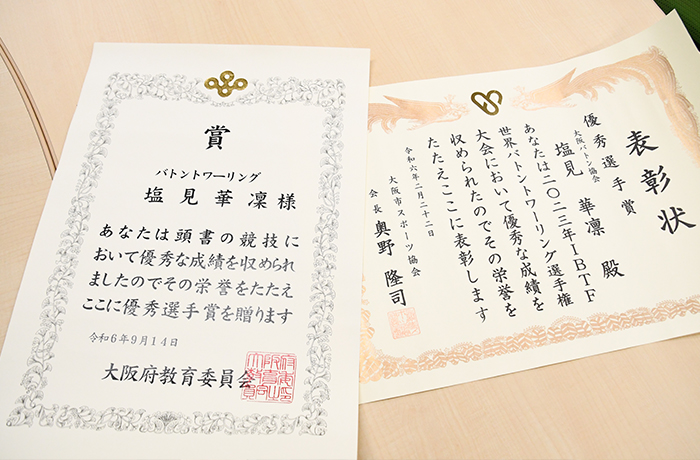 賞
バトントワーリング
塩見華凜様
あなたは頭書の競技に
おいて優秀な成績を収められ
ましたのでその栄誉をたたえ
ここに優秀選手賞を贈ります
令和6年9月14日
大阪府教育委員会
表彰状
優秀選手賞
大阪バトン協会
塩見 華凜 殿
あなたは二〇二三年IBTF
世界バトントワーリング選手権
大会において優秀な成績を
収められたのでその栄誉を
たたえここに表彰します
令和六年二月二十二日
大阪市スポーツ協会
会長 奥野 隆司